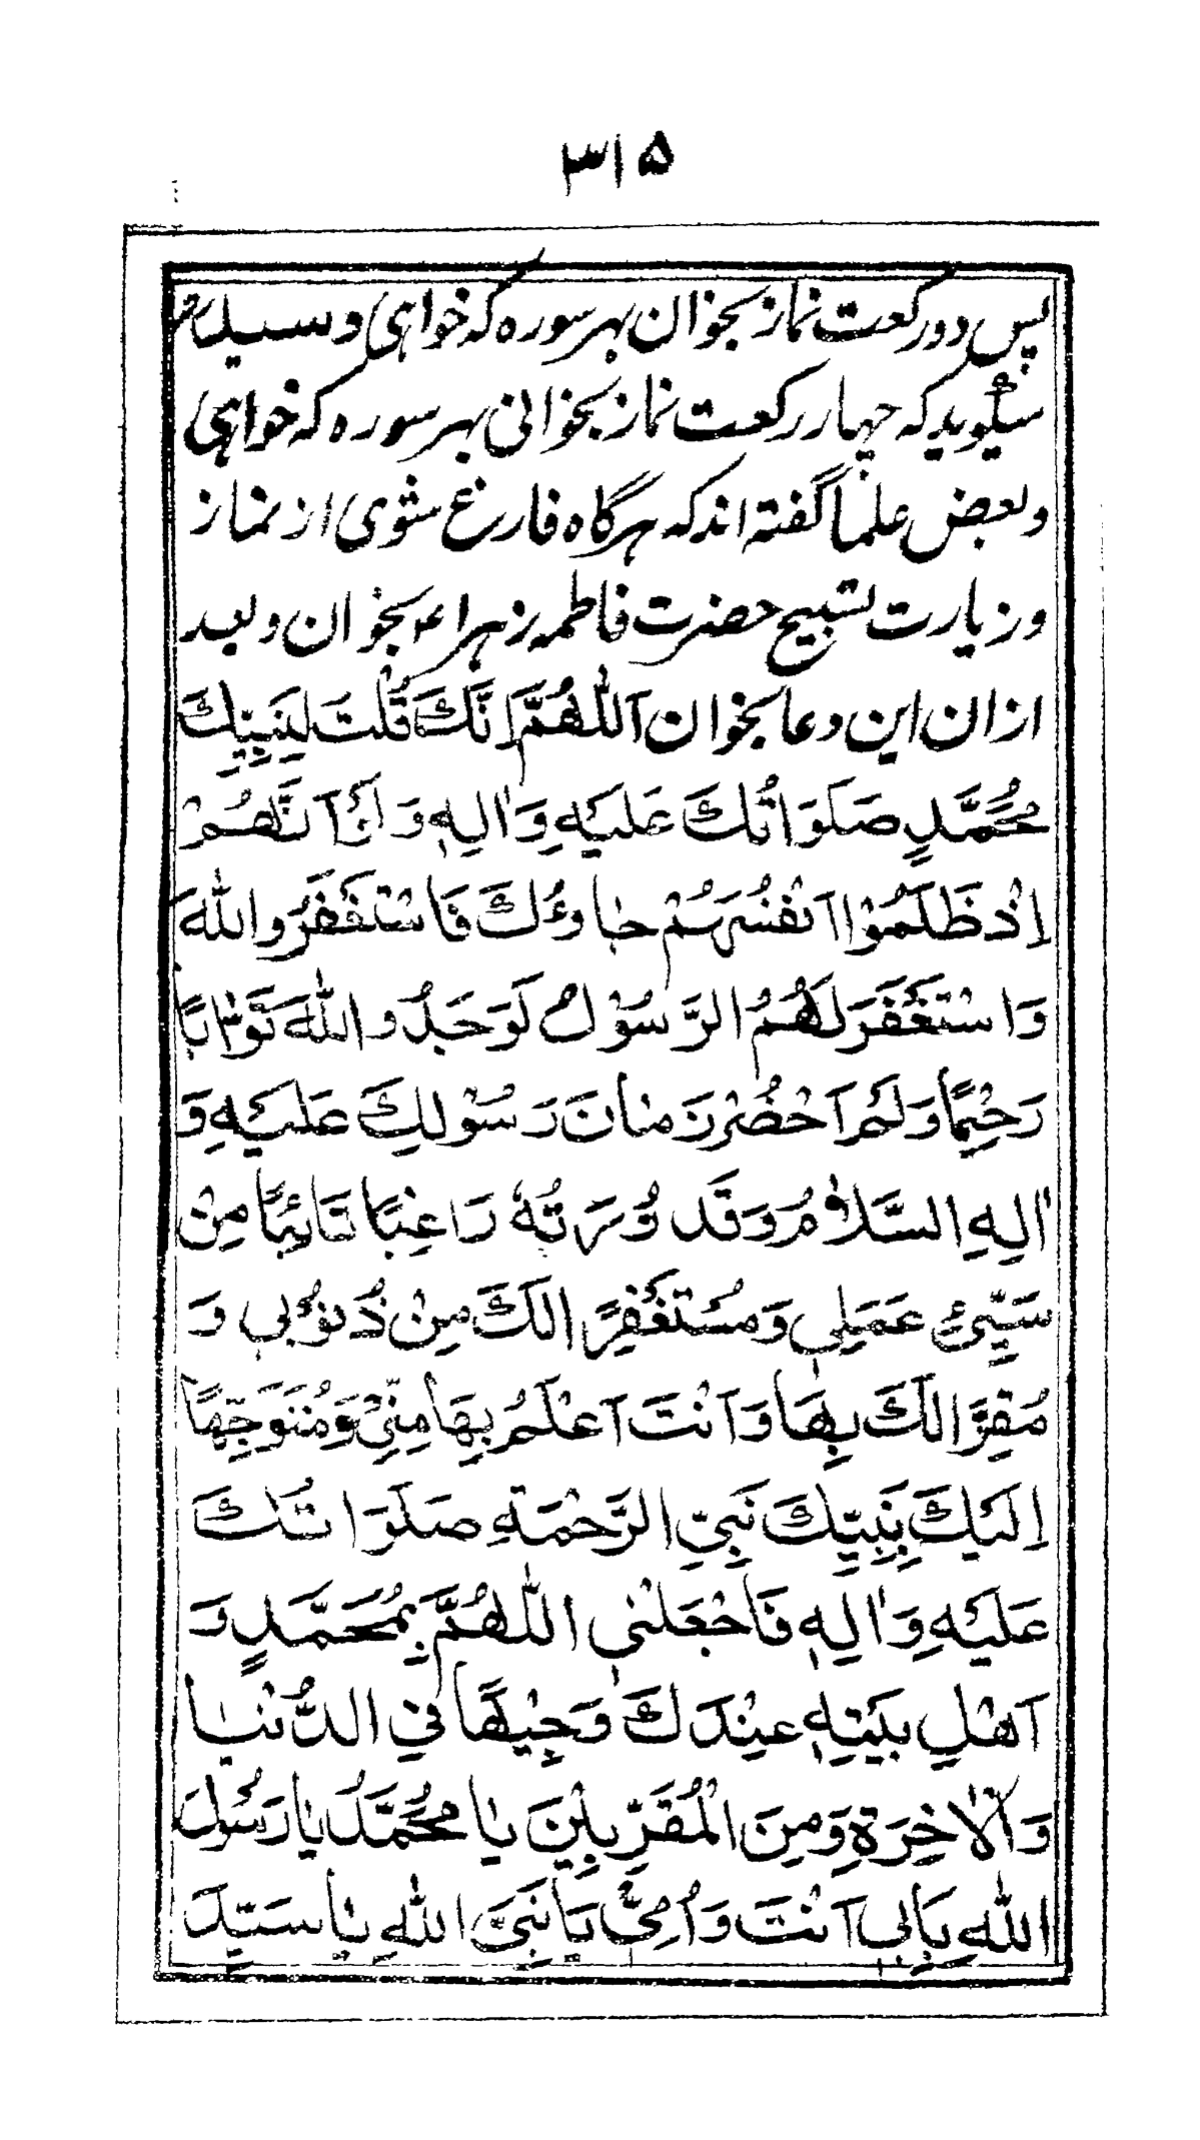 ۳۱۵
پس دو رکعت نماز بخوان بهر سوره که خواهی و سید
میگوید که چهار رکعت نماز بخوانی بهر سوره که خواهی
و بعض علما گفته اند که هرگاه فارغ شوی از نماز
و زیارت تسبیح حضرت فاطمه زهراء بخوان و بعد
ازان این دعا بخوان اَللّٰهُمَّ اِنَّكَ قُلْتَ لِنَبِيِّكَ
مُحَمَّدٍ صَلَوَاتُكَ عَلَيْهِ وَاٰلِهٖ وَلَوْ اَنَّهُمْ
اِذْ ظَلَمُوْا اَنْفُسَهُمْ جاوءُكَ فَاسْتَغْفَرُوا اللّٰهَ
وَاسْتَغْفَرَ لَهُمُ الرَّسُوْلُ لَوَجَدُوا اللّٰهَ تَوَّابًا
رَحِيْمًا وَلَمْ اَحْضُرْ زَمٰانَ رَسُوْلِكَ عَلَيْهِ وَ
اٰلِهِ السَّلَامُ وَقَدْ زُرْتُهُ رَاغِبًا تَائِبًا مِنْ
سَيِّئِ عَمَلِي وَمُسْتَغْفِرًا لَكَ مِنْ ذُنُوْبِي وَ
مُقِرًّا لَكَ بِهَا وَاَنْتَ اَعْلَمُ بِهَا مِنِّيْ وَمُتَوَجِّهًا
اِلَيْكَ بِنَبِيِّكَ نَبِيِّ الرَّحْمَةِ صَلَوَاتُكَ
عَلَيْهِ وَاٰلِهٖ فَاجْعَلْنِي اللّٰهُمَّ بِمُحَمَّدٍ وَ
اَهْلِ بَيْتِهٖ عِنْدَكَ وَجِيْهًا فِي الدُّنْيٰا
وَالْاٰخِرَةِ وَمِنَ الْمُقَرَّبِيْنَ يٰا مُحَمَّدُ يٰا رَسُوْلَ
اللّٰهِ بِاَبِي اَنْتَ وَاُمِّيْ يَا نَبِيَّ اللّٰهِ يٰا سَيِّدَ